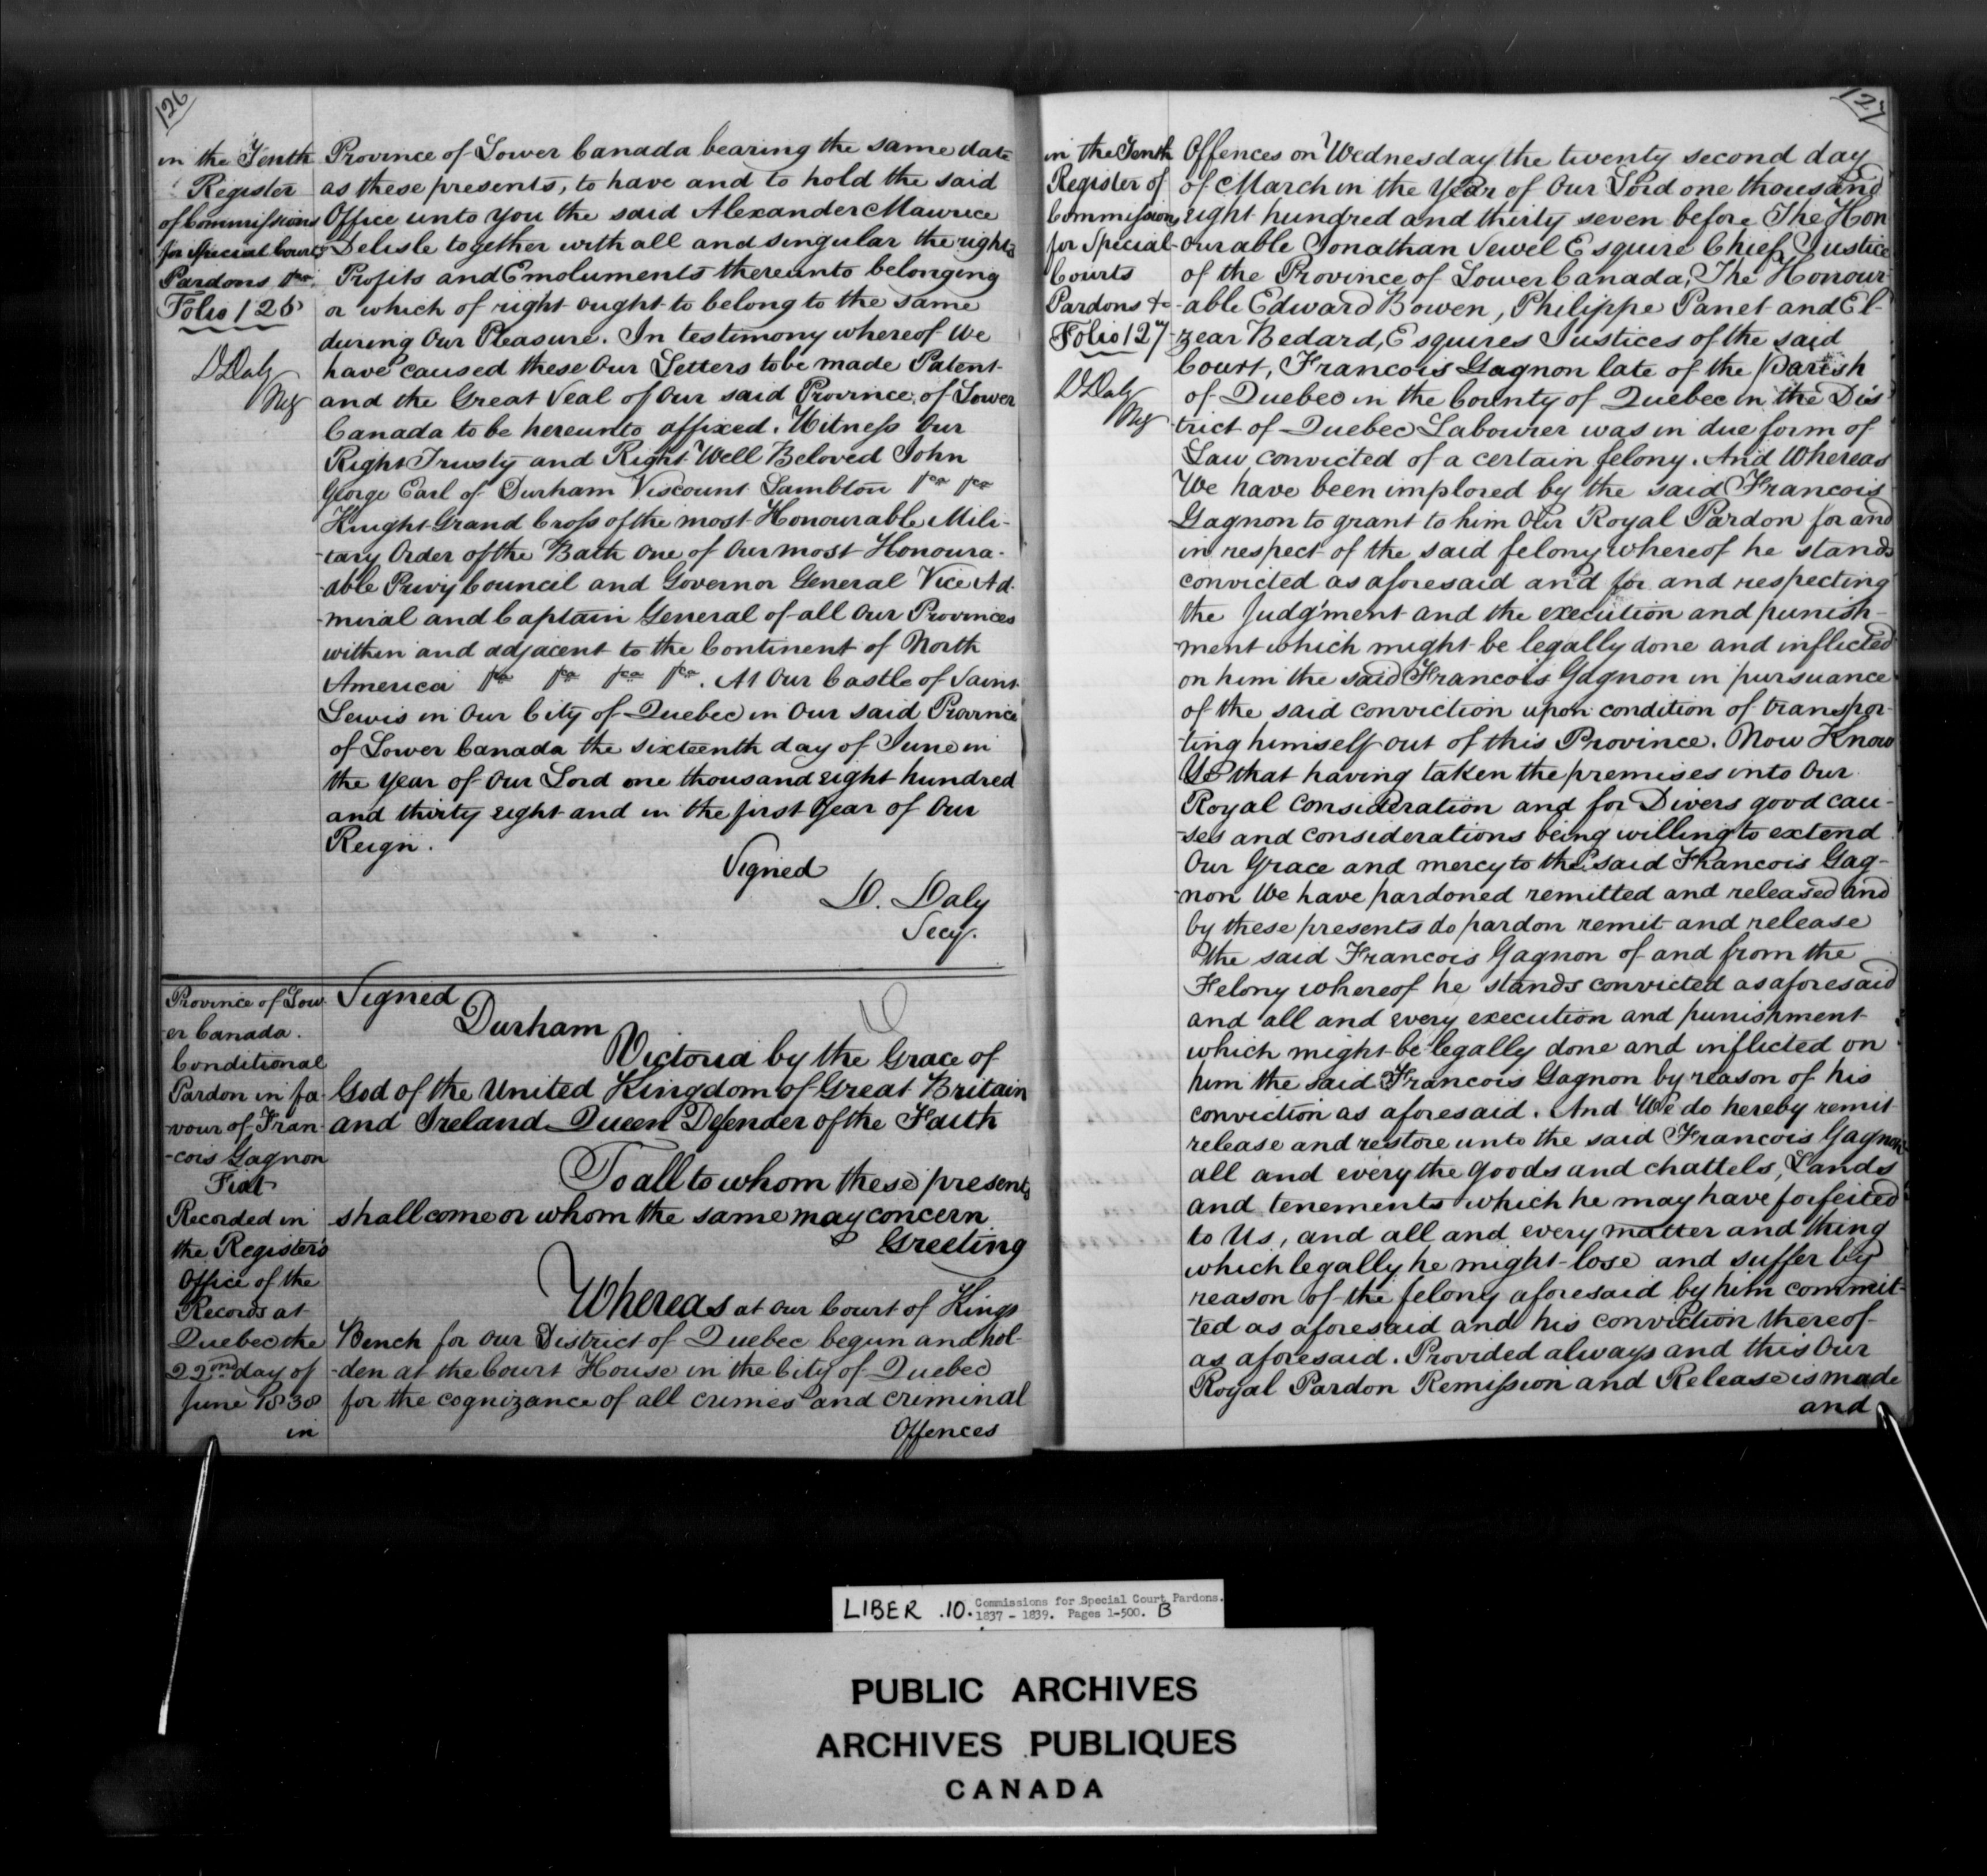 126
in the Tenth
Register
of Commissions
for Special Courts
Pardons &ca.
Folio 126
D Daly
Reg
Province of Lower Canada bearing the same date
as these presents, to have and to hold the said
Office unto you the said Alexander Maurice
Delisle together with all and singular the rights
Profits and Emoluments thereunto belonging
or which of right ought to belong to the same
during Our Pleasure. In testimony whereof We
have caused these Our Letters to be made Patent
and the Great Seal of Our said Province of Lower
Canada to be hereunto affixed. Witness Our
Right Trusty and Right Well Beloved John
George Earl of Durham Viscount Lambton &ca &ca
Knight Grand Cross of the most Honourable Mili-
-tary Order of the Bath One of Our most Honoura-
-able Privy Council and Governor General Vice Ad-
-miral and Captain General of all Our Provinces
within and adjacent to the Continent of North
America &ca &ca &ca &ca. At Our Castle of Saint
Lewis in Our City of Quebec in Our said Province
of Lower Canada the sixteenth day of June in
the year of Our Lord one thousand eight hundred
and thirty eight and in the first year of Our
Reign.
Signed
D. Daly
Secy.
Province of Low-
-er Canada.
Conditional
Pardon in fa-
-vour of Fran-
-cois Gagnon
Fiat
Recorded in
the Register's
Office of the
Records at
Quebec the
22nd day of
June 1838
in
Signed
Durham
Victoria by the Grace of
God of the United Kingdom of Great Britain
and Ireland Queen Defender of the Faith
To all to whom these presents
shall come or whom the same may concern
Greeting
Whereas at our Court of Kings
Bench for Our District of Quebec begun and hol-
-den at the Court House in the City of Quebec
for the cognizance of all crimes and criminal
Offences
127
in the Tenth
Register of
Commissions
for Special
Courts
Pardons &c
Folio 127
D Daly
Reg
Offences on Wednesday the twenty second day
of March in the Year of Our Lord one thousand
eight hundred and thirty seven before The Hon
-ourable Jonathan Sewel Esquire Chief Justice
of the Province of Lower Canada, The Honour-
-able Edward Bowen, Philippe Panet and El-
-zear Bedard, Esquires Justices of the said
Court, Francois Gagnon late of the Parish
of Quebec in the County of Quebec in the Dis-
trict of Quebec Labourer was in due form of
Law convicted of a certain felony. And Whereas
We have been implored by the said Francois
Gagnon to grant to him Our Royal Pardon for and
in respect of the said felony whereof he stands
convicted as aforesaid and for and respecting
the Judg'ment and the execution and punish-
-ment which might be legally done and inflicted
on him the said Francois Gagnon in pursuance
of the said conviction upon condition of transpor-
-ting himself out of this Province. Now Know
Ye that having taken the premises into Our
Royal consideration and for Divers good cau-
-ses and considerations being willing to extend
Our Grace and mercy to the said Francois Gag-
-non We have pardoned remitted and released and
by these presents do pardon remit and release
the said Francois Gagnon of and from the
Felony whereof he stands convicted as aforesaid
and all and every execution and punishment
which might be legally done and inflicted on
him the said Francois Gagnon by reason of his
conviction as aforesaid. And We do hereby remit
release and restore unto the said Francois Gagnon
all and every the goods and chattels, Lands
and tenements which he may have forfeited
to Us, and all and every matter and thing
which legally he might lose and suffer by
reason of the felony aforesaid by him commit-
-ted as aforesaid and his conviction thereof
as aforesaid. Provided always and this Our
Royal Pardon Remission and Release is made
and
LIBER .10. Commissions for Special Court Pardons.
1837 - 1839. Pages 1-500. B
PUBLIC ARCHIVES
ARCHIVES PUBLIQUES
CANADA